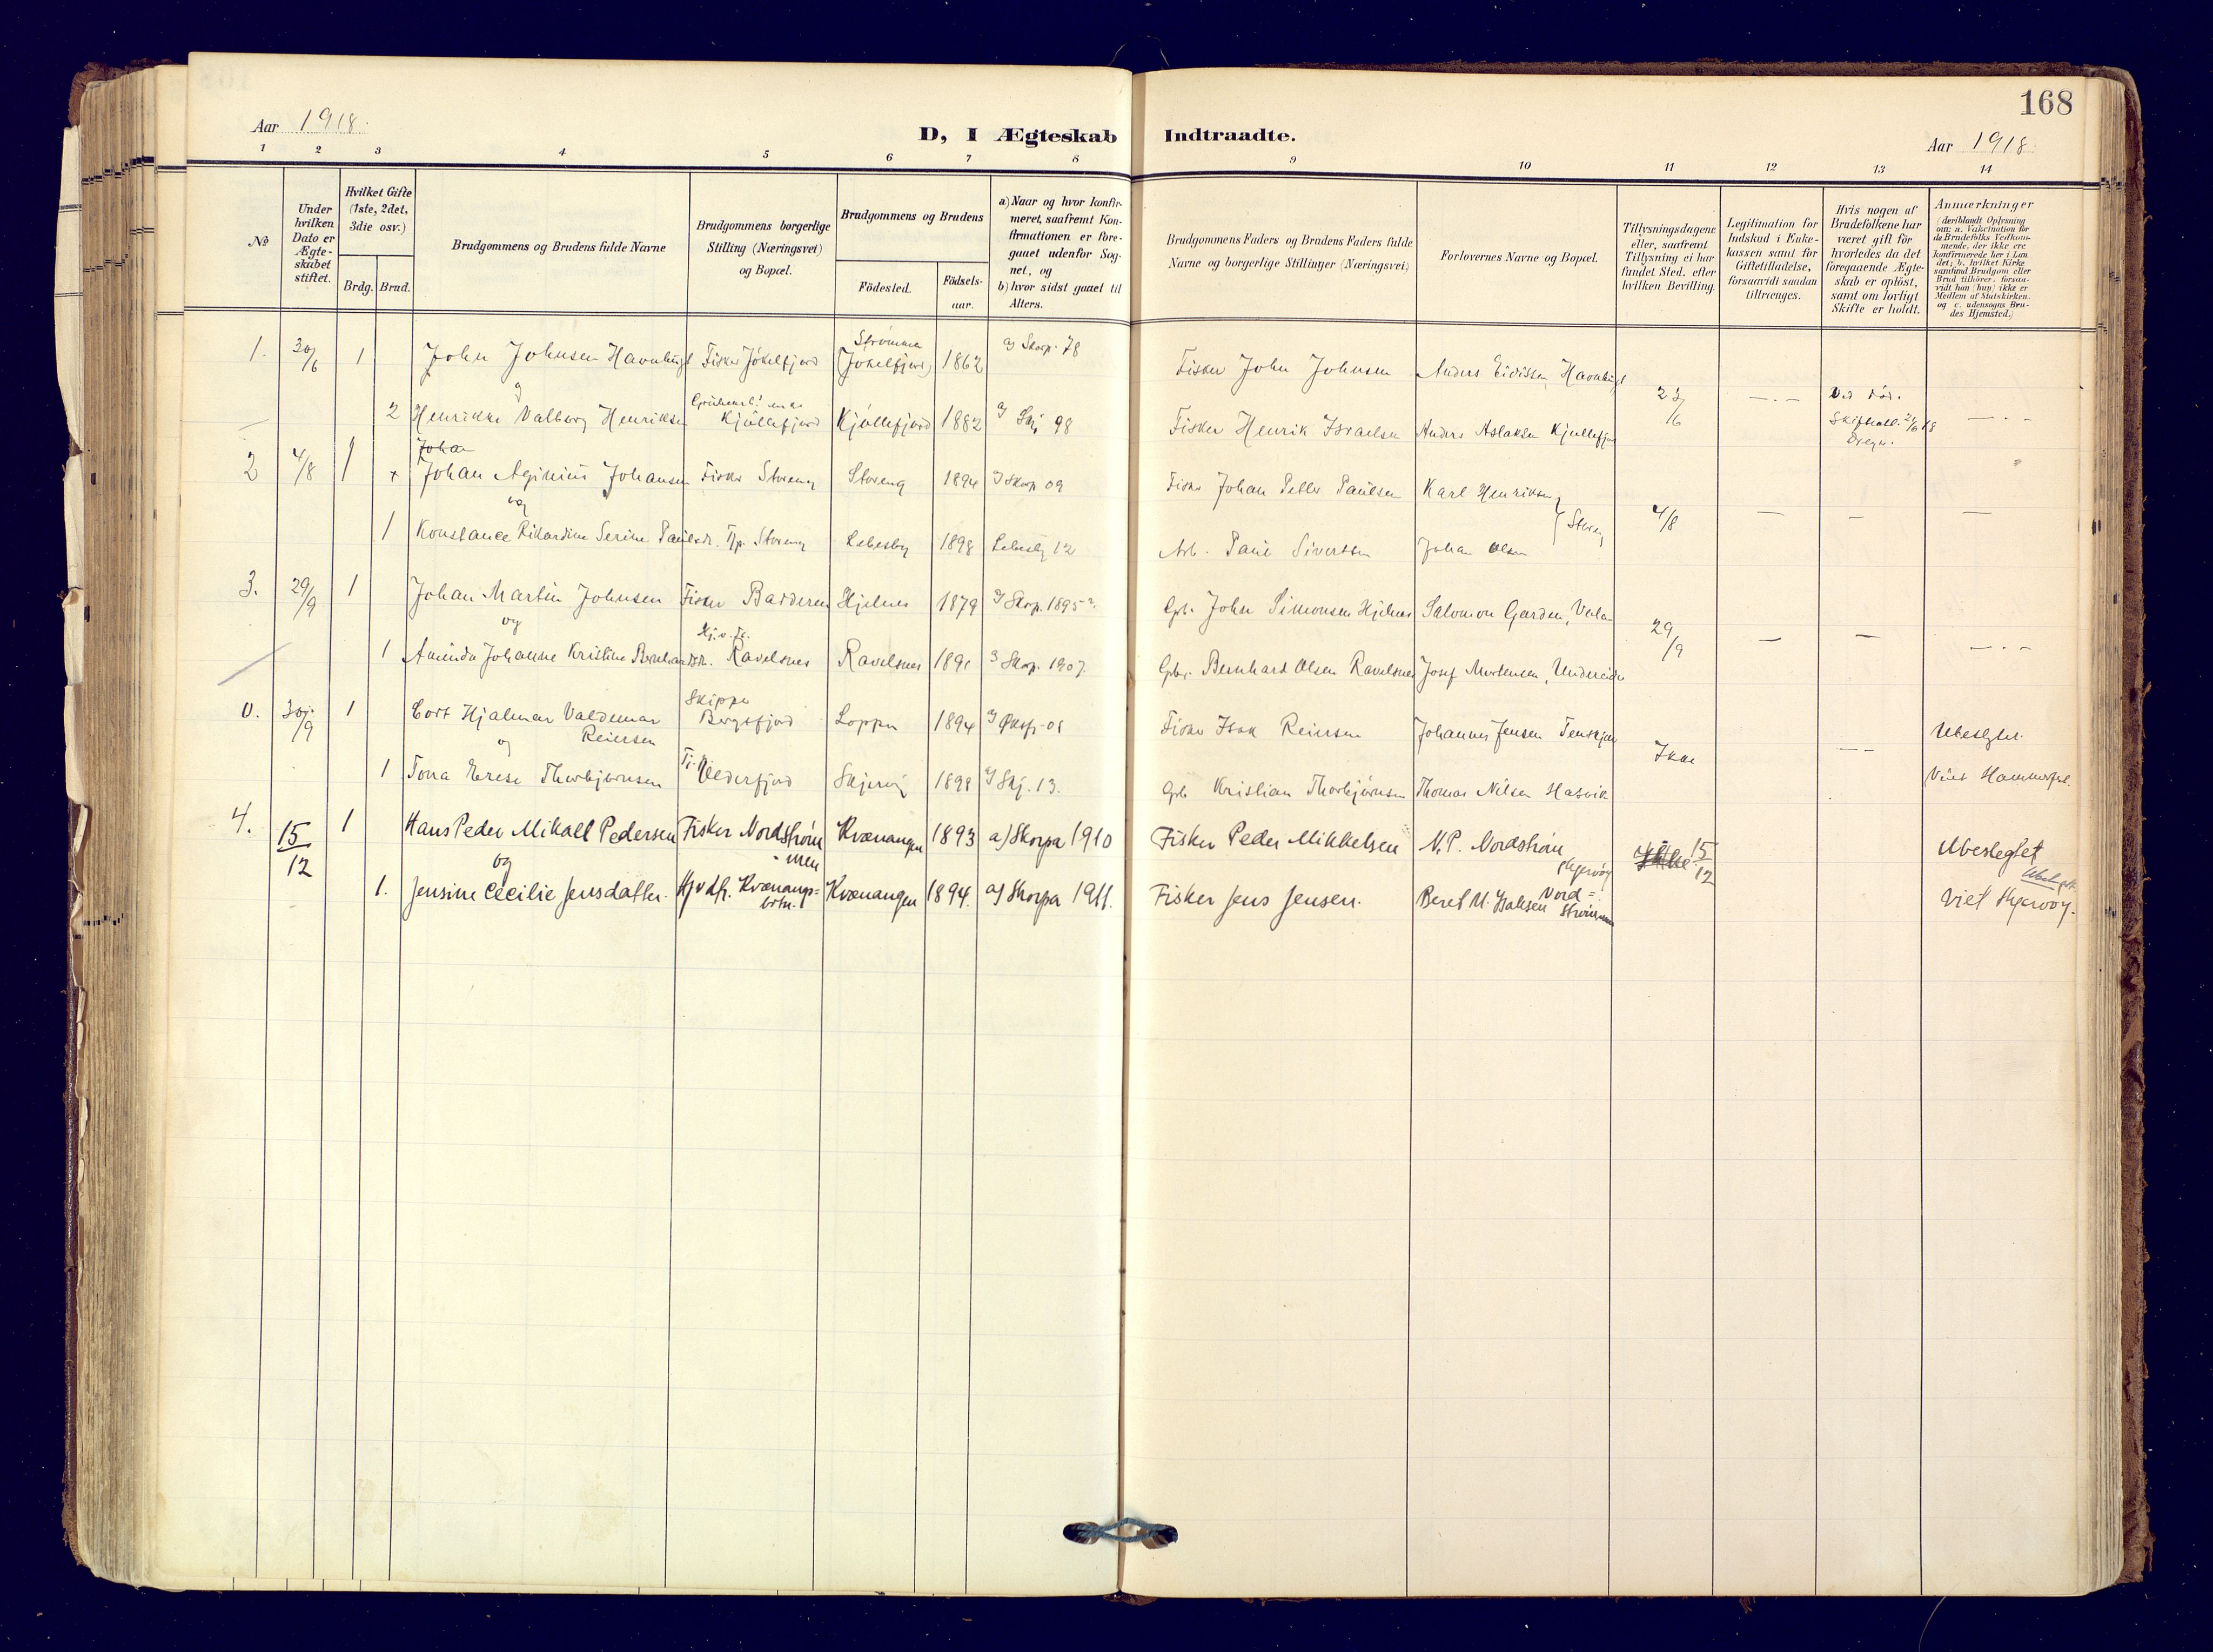 168
Aar 1918.
D, I Ægteskab Indtraadte.
Aar 1918.
1 2 3 4 5 6 7 8 9 10 11 12 13 14
No
Under hvilken Dato er Ægteskabet stiftet.
Hvilket Gifte (1ste, 2det, 3die osv.)
Brdg. Brud.
Brudgommens og Brudens fulde Navne
Brudgommens borgerlige Stilling (Næringsvei) og Bopæl.
Brudgommens og Brudens
Födested.
Födselsaar.
a) Naar og hvor konfirmeret, saafremt Konfirmationen er foregaaet udenfor Sognet, og
b) hvor sidst gaaet til Alters.
Brudgommens Faders og Brudens Faders fulde Navne og borgerlige Stillinger (Næringsvei)
Forlovernes Navne og Bopæl.
Tillysningsdagene eller, saafremt Tillysning ei har fundet Sted, efter hvilken Bevilling.
Legitimation for Indskud i Enkekassen samt for Giftetilladelse, forsaavidt saadan tiltrænges.
Hvis nogen af Brudefolkene har været gift för hvorledes da det foregaaende Ægteskab er oplöst, samt om lovligt Skifte er holdt.
Anmærkninger
(deriblandt Oplysning om: a. Vakcination for de Brudefolks Vedkommende, der ikke ere konfirmerede her i Landet; b. hvilket Kirkesamfund Brudgom eller Brud tilhörer, forsaavidt han (hun) ikke er Medlem af Statskirken, og c. udensogns Brudes Hjemsted.)
1. 30/6 1 John Johnsen Havnbugt Fisker Jökelfjord Strömmen (Jökelfjord) 1862 a) Skorp. 78 Fisker John Johnsen Anders Eidissen, Havnbugt
23/6 — . — Ved Död.
og
2 Henrikke Valborg Henriksen Kjöllefjord Kjöllefjord 1882 98 Fisker Henrik Israelsen Anders Aslaksen Kjøllefjord
Johan
2 4/8 1 + Johan Aginius Johansen Fisker Storeng Storeng 1894 a) Skorp 09 Fisker Johan Petter Paulsen Karl Henriksen
og
Storeng 4/8 — — —
1 Konstance Rikardine Serine Paulsdr. Tjp. Storeng Lebesby 1898 Lebesby 12 Arb. Paul Sivertsen Johan Olsen
3. 29/9 1 Johan Martin Johnsen Fisker Badderen Hjelnes 1879 a) Skorp. 1895 Gbr. John Simonsen Hjelnes Salomon Garden,
og 29/9 — — — . —
1 Aminda Johanne Kristine Bernhardsdr. Ravelsnes Ravelsnes 1891 a) Skorp. 1907. Gbr. Bernhard Olsen Ravelsnes Josef Mortensen, Undereidet
0. 30/9 1 Cort Hjalmar Valdemar Reiersen Skipper Bergsfjord Loppen 1894 Fisker Isak Reiersen Johannes Jensen Ubeslgtet.
og
1 Tora Erese Thorbjørnsen Olderfjord Skjervöy 1898 a) Skj. 13. Gbr Kristian Thorbjørnsen Thomas Nilsen Hasvik Viet Hammerfest.
4. 15/12 1 Hans Peder Mikall Pedersen Fisker Nordstrømmen Kvænangen 1893 a) Skorpa 1910 Fisker Peder Mikkelsen N. P. Nordstrøm Skjervöy 15/12 Ubeslegtet
og
1. Jensine Cecilie Jensdatter. Hjv dtr. Kvænangsbotn. Kvænangen 1894. a) Skorpa 1911. Fisker Jens Jensen. Beret M. Isaksen Nordstrømmen Viet Skjervöy.